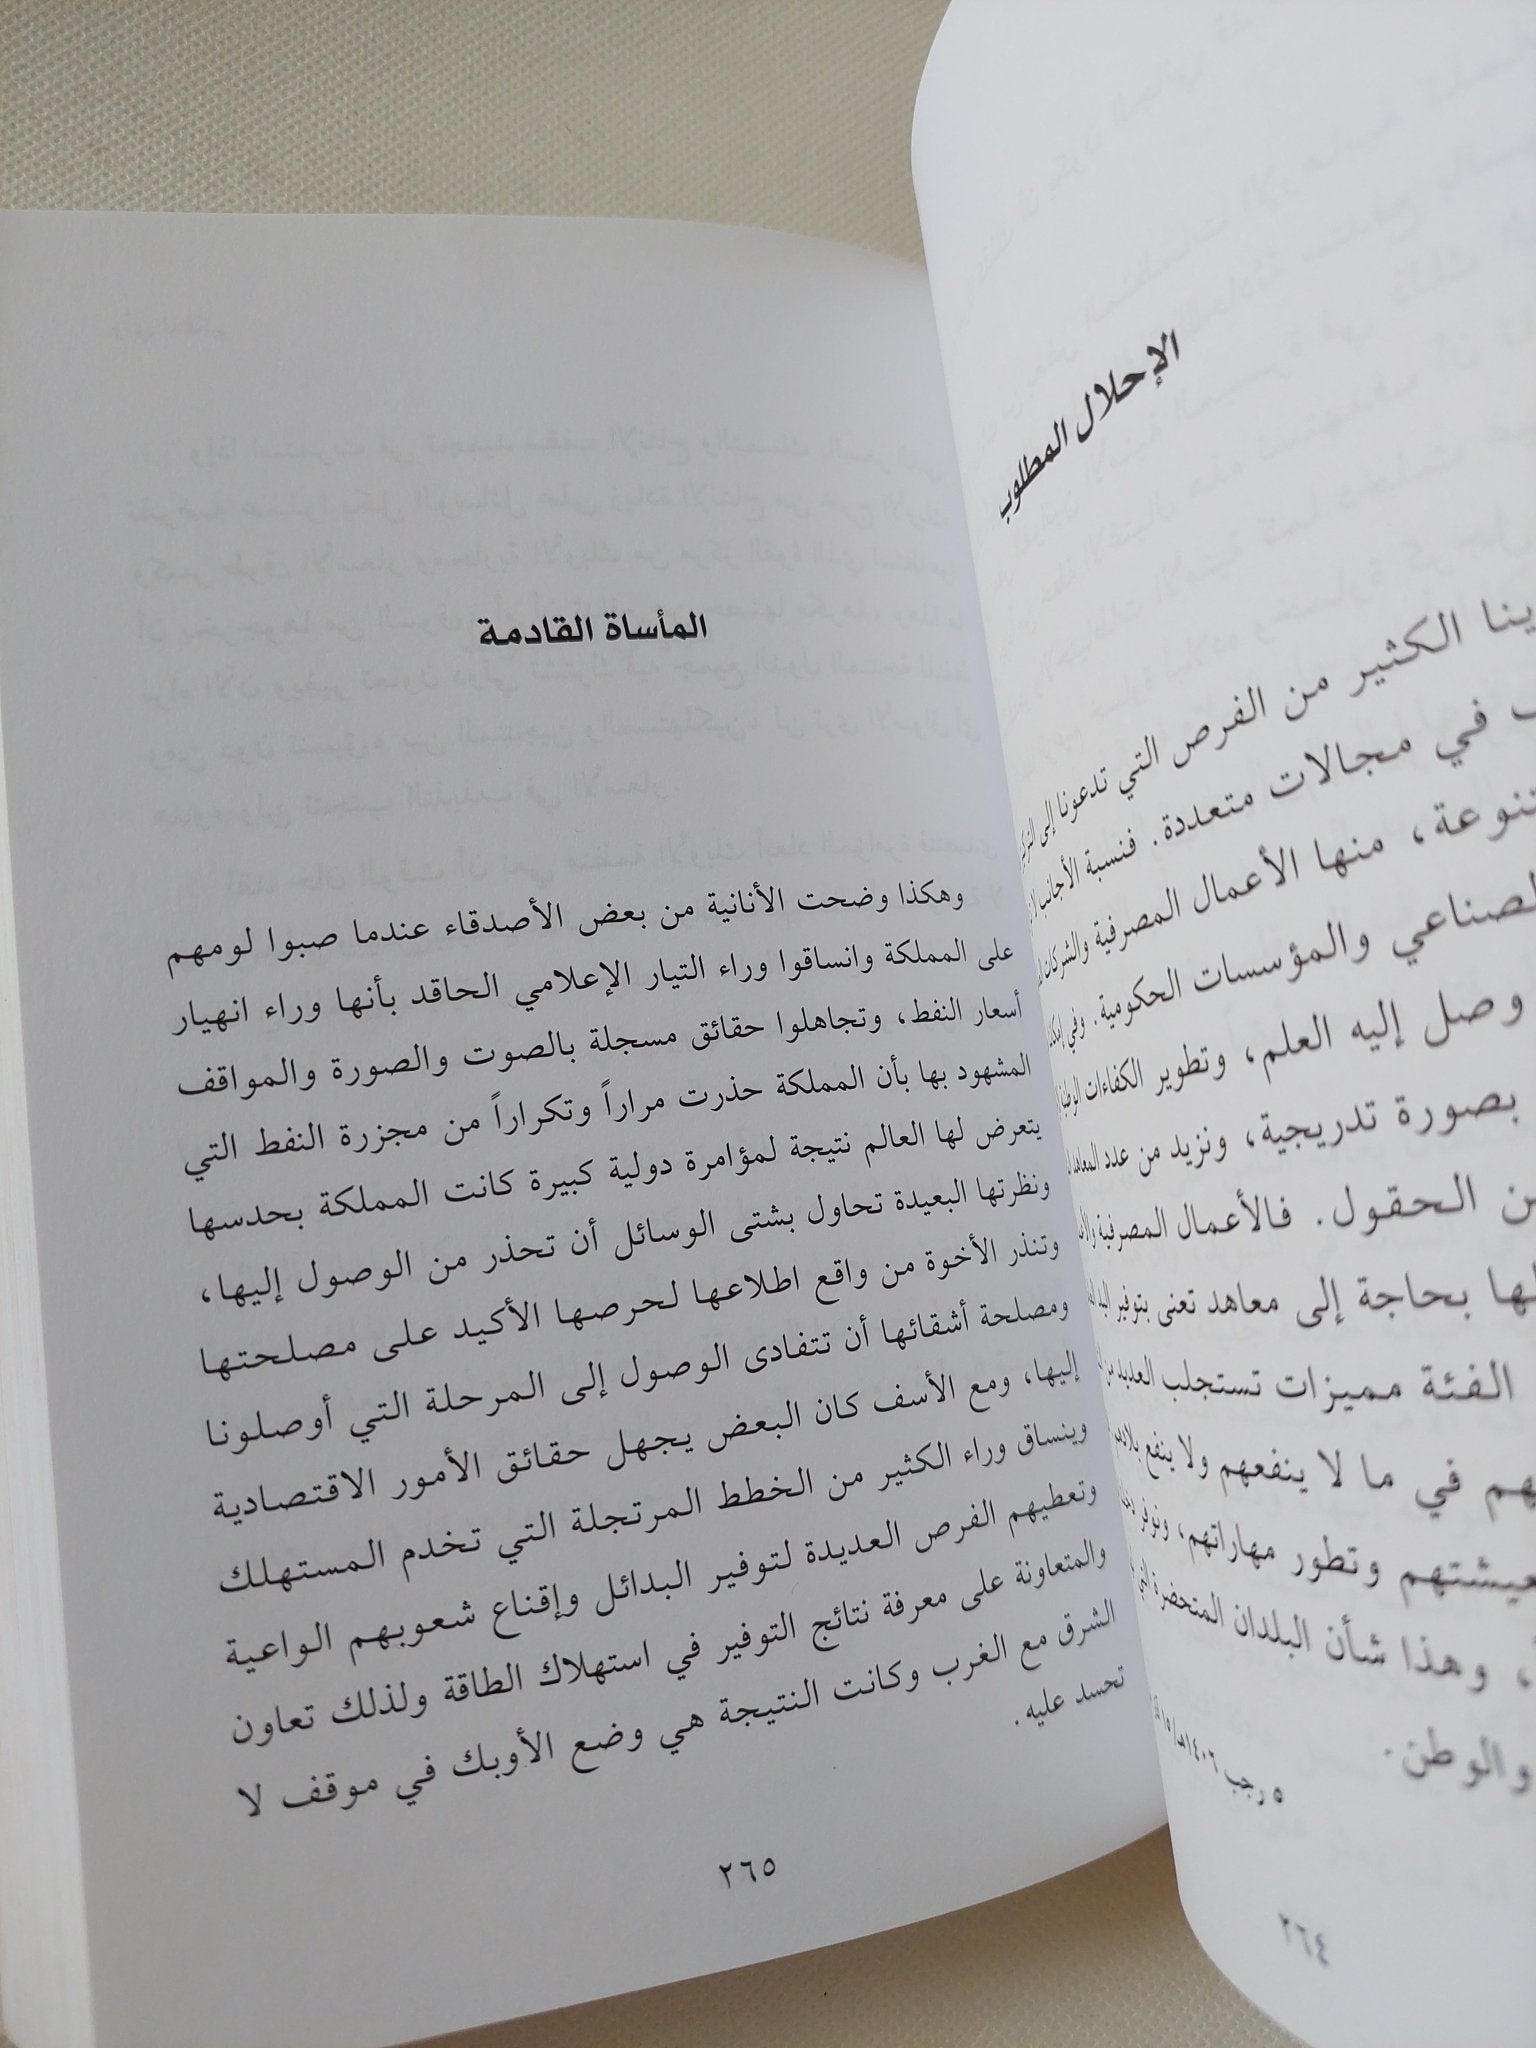 الإحلال المطلوب
ينا الكثير من الفرص التي تدعونا إلى
في مجالات متعددة. فنسبة الأجانب
تنوعة، منها الأعمال المصرفية والشركات
لصناعي والمؤسسات الحكومية. وفي
وصل إليه العلم، وتطوير الكفاءات
بصورة تدريجية، ونزيد من عدد المعاهد
ن الحقول. فالأعمال المصرفية
لها بحاجة إلى معاهد تعنى بتوفير
الفئة مميزات تستجلب العديد من
هم في ما لا ينفعهم ولا ينفع
عيشتهم وتطور مهاراتهم، ونوفر
، وهذا شأن البلدان المتحضرة التي
والوطن.
٥ رجب ١٤٠٦هـ/١٥
٢٦٤
المأساة القادمة
وهكذا وضحت الأنانية من بعض الأصدقاء عندما صبوا لومهم
على المملكة وانساقوا وراء التيار الإعلامي الحاقد بأنها وراء انهيار
أسعار النفط، وتجاهلوا حقائق مسجلة بالصوت والصورة والمواقف
المشهود بها بأن المملكة حذرت مراراً وتكراراً من مجزرة النفط التي
يتعرض لها العالم نتيجة لمؤامرة دولية كبيرة كانت المملكة بحدسها
ونظرتها البعيدة تحاول بشتى الوسائل أن تحذر من الوصول إليها،
وتنذر الأخوة من واقع اطلاعها لحرصها الأكيد على مصلحتها
ومصلحة أشقائها أن تتفادى الوصول إلى المرحلة التي أوصلونا
إليها، ومع الأسف كان البعض يجهل حقائق الأمور الاقتصادية
وينساق وراء الكثير من الخطط المرتجلة التي تخدم المستهلك
وتعطيهم الفرص العديدة لتوفير البدائل وإقناع شعوبهم الواعية
والمتعاونة على معرفة نتائج التوفير في استهلاك الطاقة ولذلك تعاون
الشرق مع الغرب وكانت النتيجة هي وضع الأوبك في موقف لا
تحسد عليه.
٢٦٥